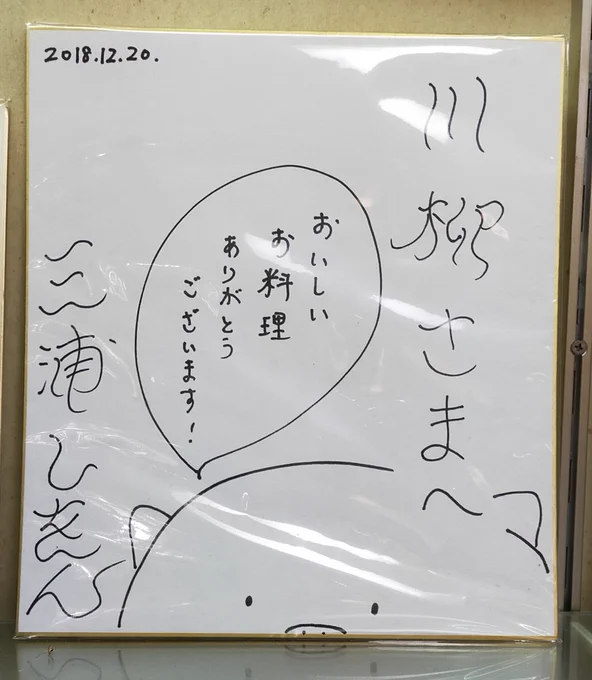 2018.12.20.
川柳さまへ
おいしい
お料理
ありがとう
ございます！
三浦しをん